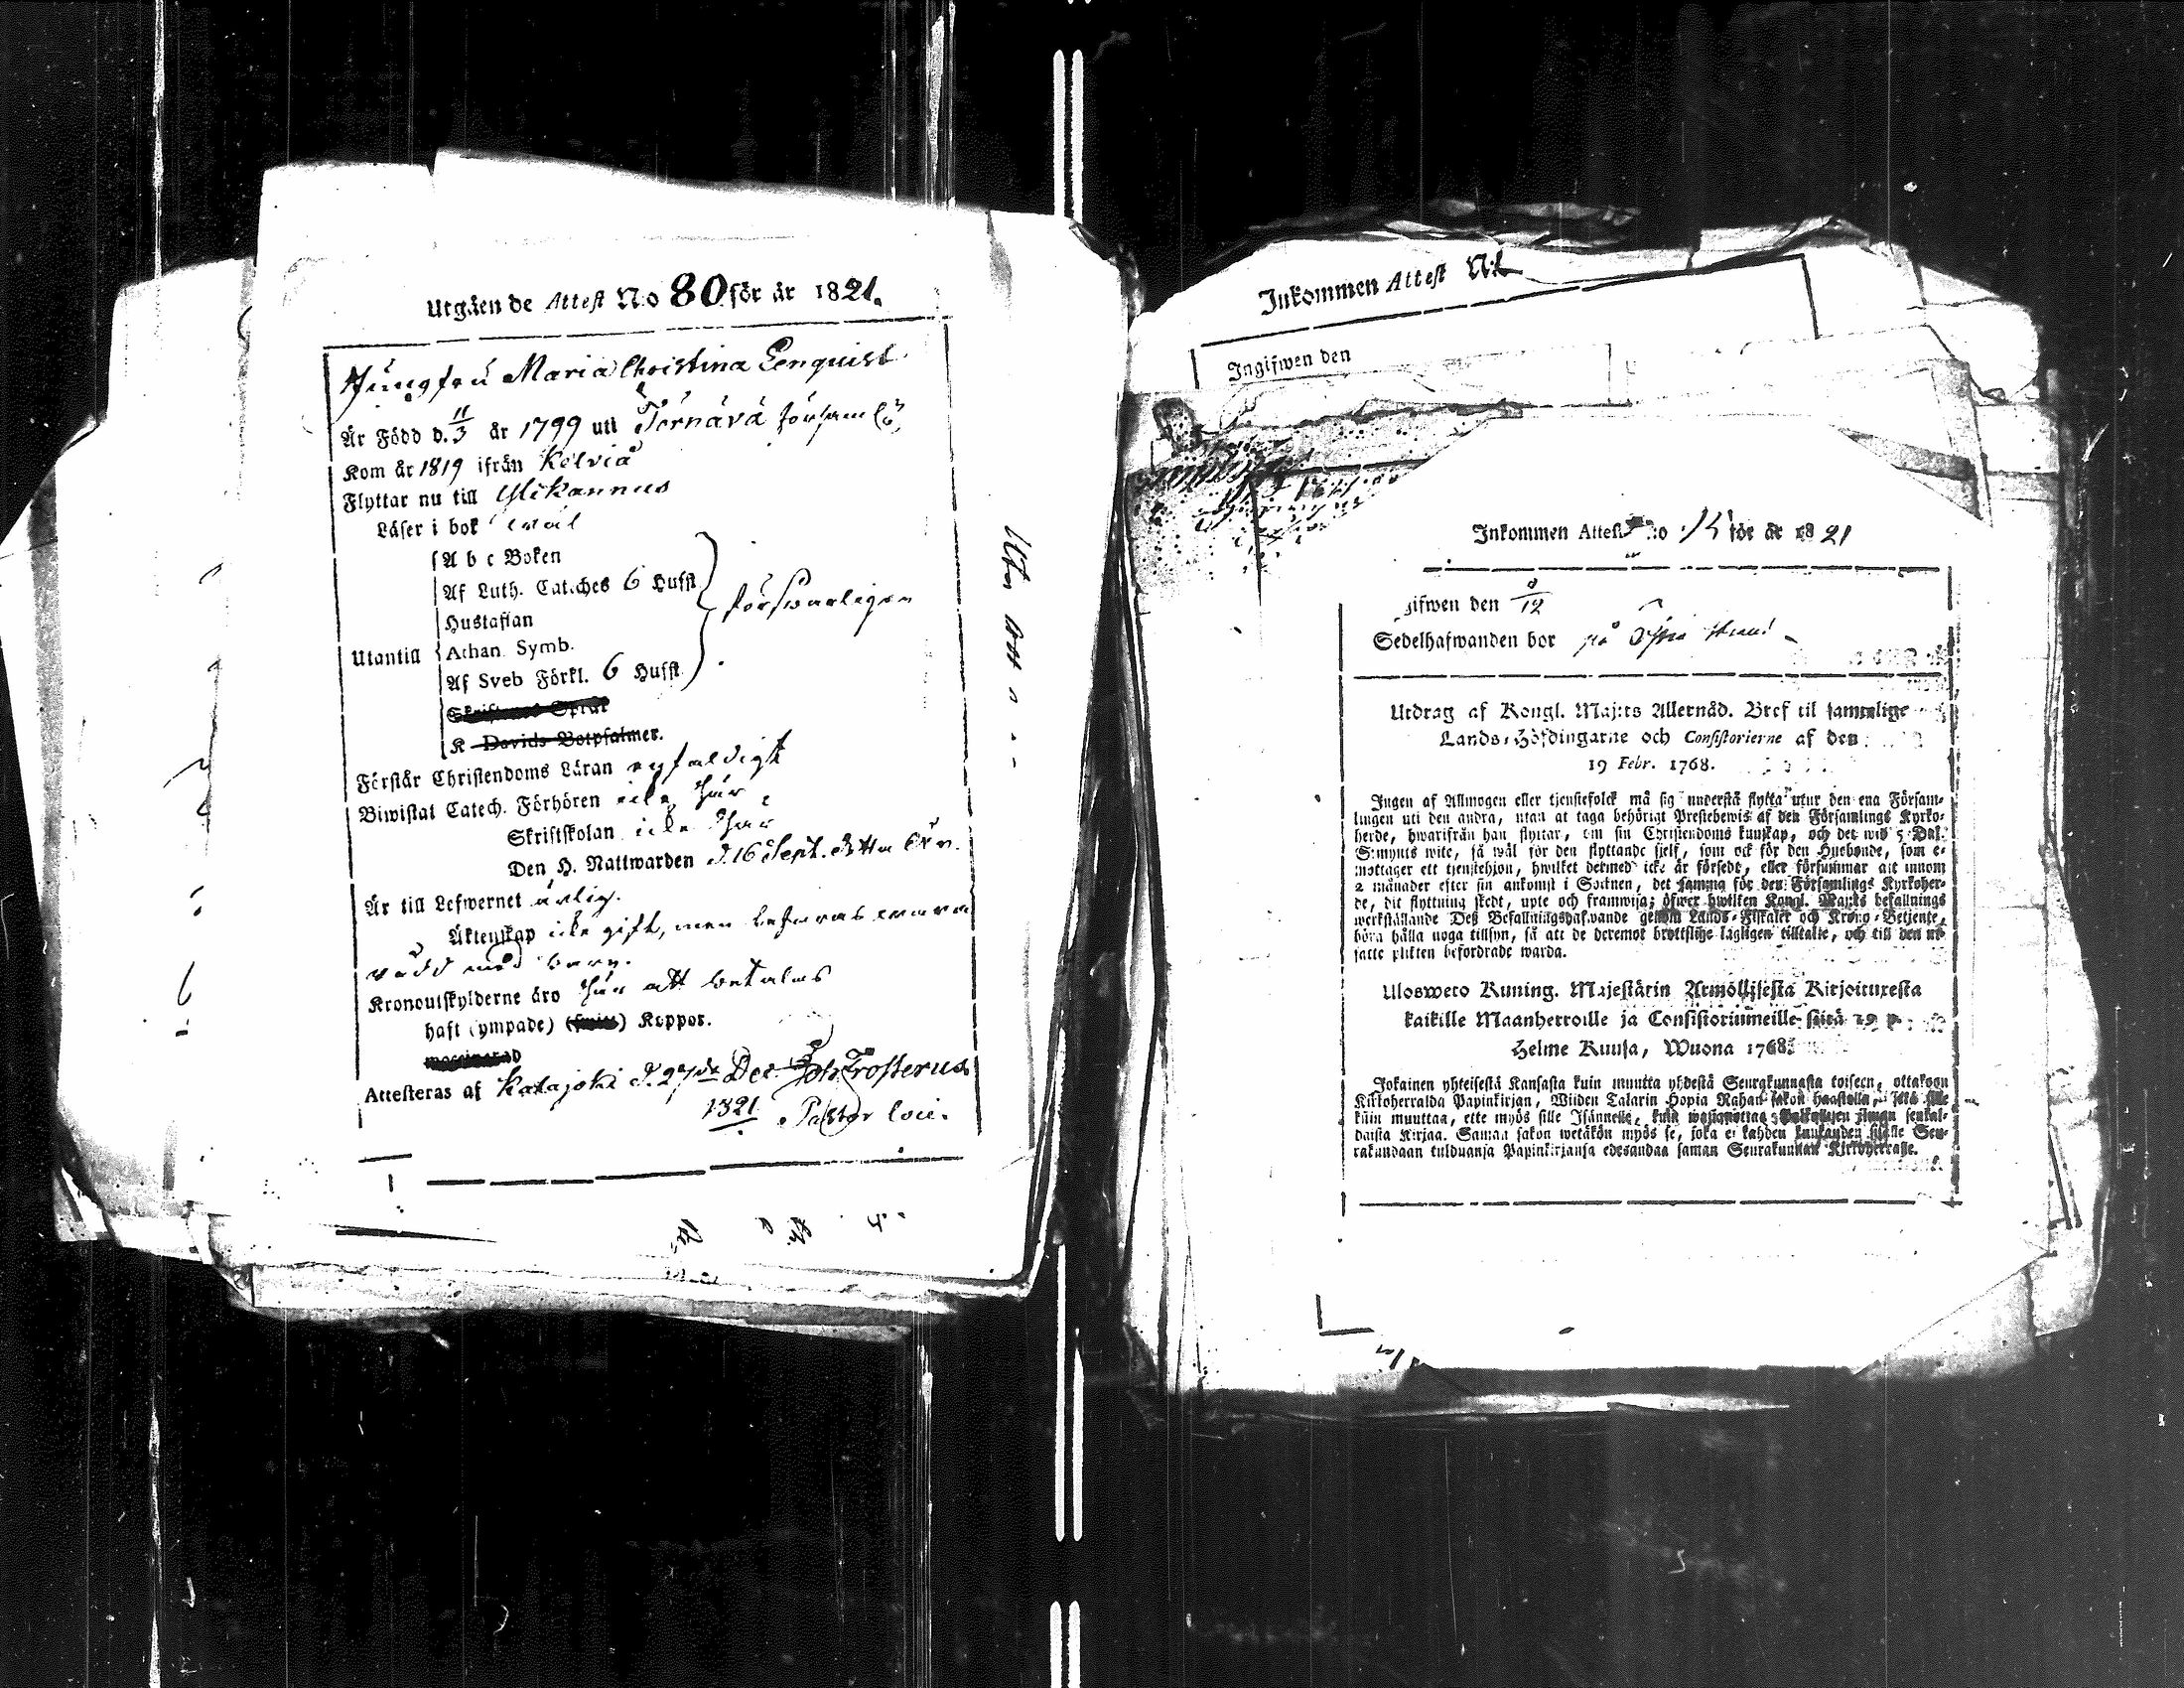 Utgåen de Attest No 80 för år 1821.
Jungfru Maria Christina Lenquist
Är Född d. 11/3 år 1799 uti Törnävä församl
Kom år 1819 ifrån Kelviå
Flyttar nu till Ylikannus
Läser i bok wäl
A b c Boken
Af Luth. Cateches 6 Hufst
försvarligen
Hustaflan
Utantill
Athan. Symb.
Af Sveb Förkl. 6 Hufst
K Davids Botpsalmer.
Förstår Christendoms Läran enfaldigt
Biwistat Catech. Förhören icke här
Skriftskolan icke här
Den H. Nattwarden d. 16 Sept. detta år
Är till Lefwernet ärlig.
Äktenskap icke gift, men befaras wara
rådd med barn.
Kronoutskylderne äro här att betalas
haft (ympade) Koppor.
Attesteras af Kalajoki d. 27de Dec. Joh Frosterus
1821 Pastor
Inkommen Attest N:o
Ingifwen den
Inkommen Attest No för år 1821
gifwen den /12
Sedelhafwanden bor på
Utdrag af Kongl. Maj:ts Allernåd. Bref til samtelige
Lands-Höfdingarne och Consistorierne af den
19 Febr. 1768.
Ingen af Allmogen eller tjenstefolck må sig understå flytta utur den ena Försam-
lingen uti den andra, utan at taga behörigt Prestebewis af den Församlings Kyrko-
herde, hwarifrån han flyttar, om sin Christendoms kunskap, och det wid 5 Dal.
S:mynts wite, så wäl för den flyttande sjelf, som ock för den Husbonde, som e-
mottager ett tjenstehjon, hwilket dermed icke är försedt, eller försummar att innom
2 månader efter sin ankomst i Socknen, det samma för den Församlings Kyrkoher-
de, dit flyttning skedt, upte och framwisa; öfwer hwilken Kongl. Maj:ts befallnings
werkställande Deß Befallningshafwande genom Lands-Fiskaler och Krono-Betjente,
böra hålla noga tillsyn, så att de deremot brottslige lagligen tilltalte, och till den ut-
satte plikten befordrade warda.
Ulosweto Kuning. Majestärin Armollisesta Kirjoituxesta
kaikille Maanherroille ja Consistoriumeille siitä 19 p.
Helme Kuusa, Wuona 1768:
Jokainen yhteisestä Kansasta kuin muutta yhdestä Seurakunnasta toiseen, ottakoon
Kirkoherralda Papinkirjan, Wiiden Talarin Hopia Rahan sakon haastolla, sekä sille
kuin muuttaa, ette myös sille Isännelle, kuin ilman senkal-
daista Kirjaa. Saman sakon wetäkön myös se, joka ei kahden kuukauden sisälle Seu-
rakundaan tulduansa Papinkirjansa edesandaa saman Seurakunnan Kirkoherralle.